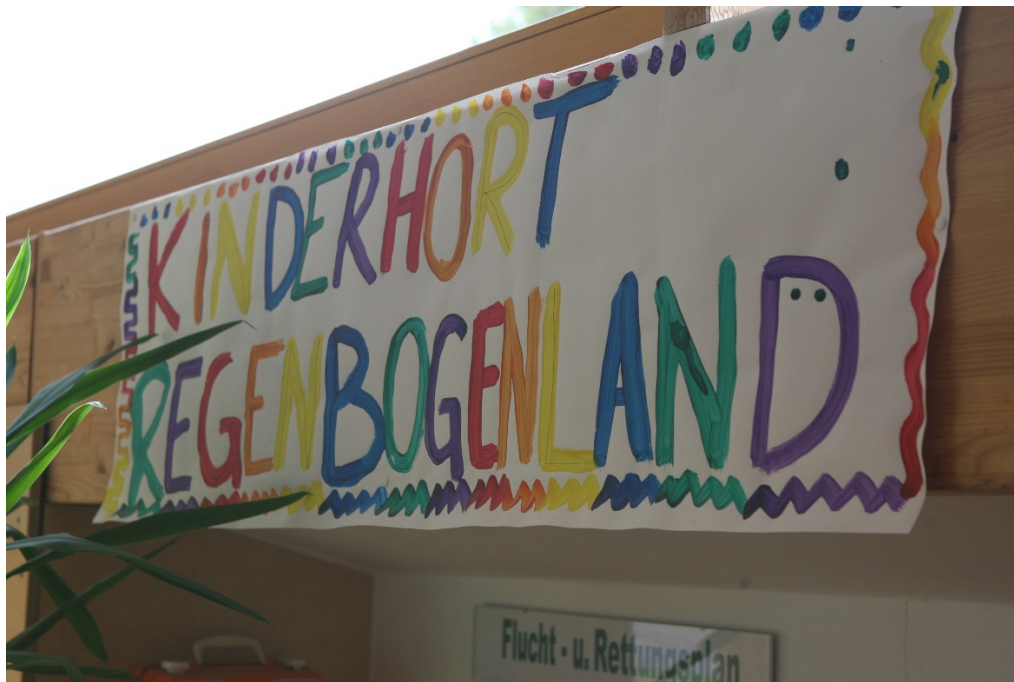 KINDERHORT
REGENBOGENLAND
Flucht - u. Rettungsplan